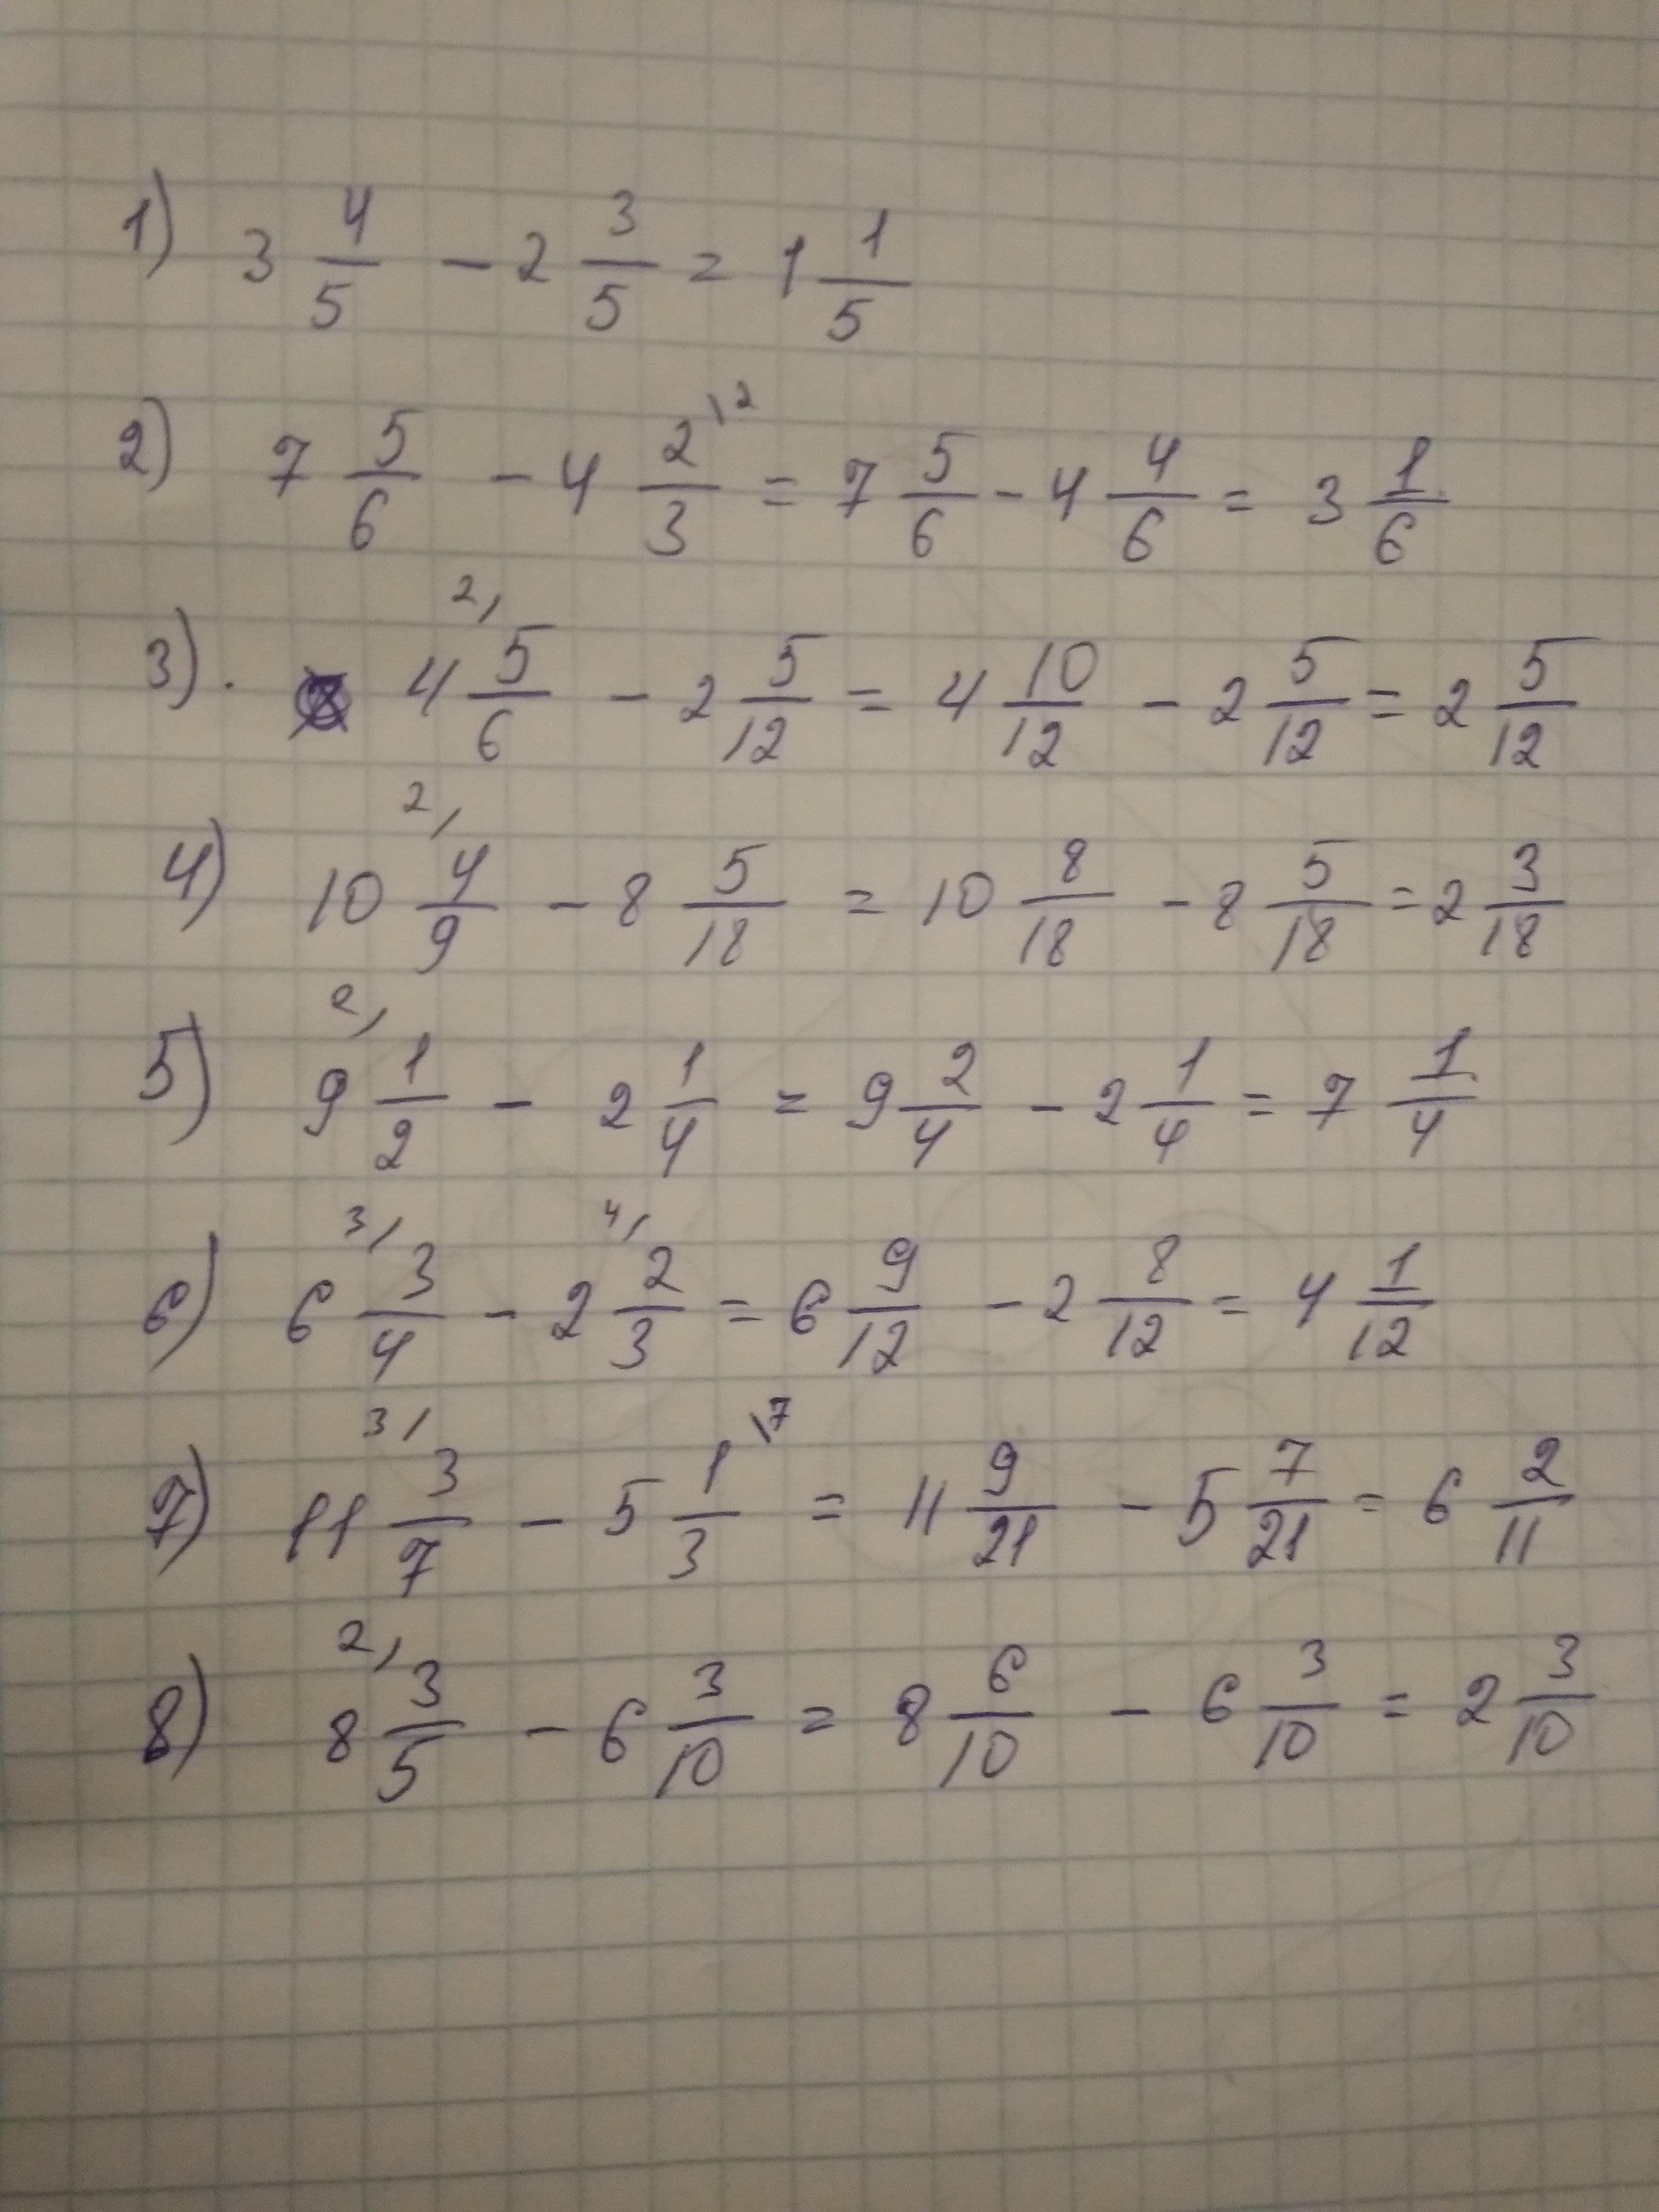 1) 3 4/5 - 2 3/5 = 1 1/5
2) 7 5/6 - 4 2\2/3 = 7 5/6 - 4 4/6 = 3 1/6
3). 4 2/5/6 - 2 5/12 = 4 10/12 - 2 5/12 = 2 5/12
4) 10 2/4/9 - 8 5/18 = 10 8/18 - 8 5/18 = 2 3/18
5) 9 2/1/2 - 2 1/4 = 9 2/4 - 2 1/4 = 7 1/4
6) 6 3/3/4 - 2 4/2/3 = 6 9/12 - 2 8/12 = 4 1/12
7) 11 3/3/7 - 5 1\7/3 = 11 9/21 - 5 7/21 = 6 2/11
8) 8 2/3/5 - 6 3/10 = 8 6/10 - 6 3/10 = 2 3/10